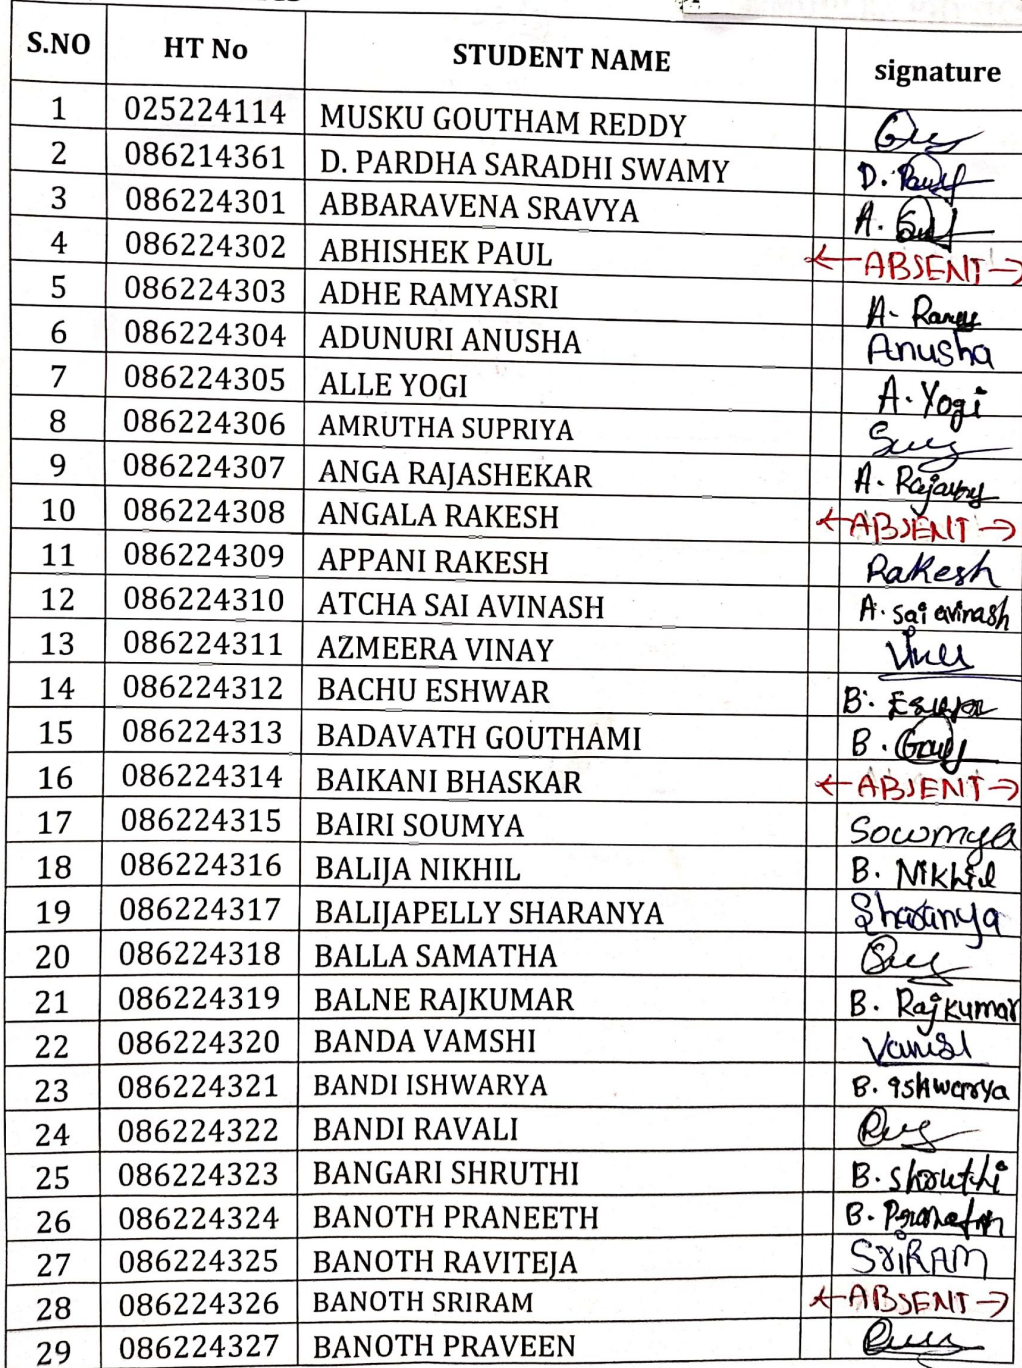 S.NO HT No STUDENT NAME signature
1 025224114 MUSKU GOUTHAM REDDY
2 086214361 D. PARDHA SARADHI SWAMY D.
3 086224301 ABBARAVENA SRAVYA A.
4 086224302 ABHISHEK PAUL ←ABSENT→
5 086224303 ADHE RAMYASRI A.
6 086224304 ADUNURI ANUSHA Anusha
7 086224305 ALLE YOGI A. Yogi
8 086224306 AMRUTHA SUPRIYA
9 086224307 ANGA RAJASHEKAR A.
10 086224308 ANGALA RAKESH ←ABSENT→
11 086224309 APPANI RAKESH Rakesh
12 086224310 ATCHA SAI AVINASH A. sai avinash
13 086224311 AZMEERA VINAY
14 086224312 BACHU ESHWAR B.
15 086224313 BADAVATH GOUTHAMI B.
16 086224314 BAIKANI BHASKAR ←ABSENT→
17 086224315 BAIRI SOUMYA Sowmya
18 086224316 BALIJA NIKHIL B. Nikhil
19 086224317 BALIJAPELLY SHARANYA Sharanya
20 086224318 BALLA SAMATHA
21 086224319 BALNE RAJKUMAR B. Rajkumar
22 086224320 BANDA VAMSHI
23 086224321 BANDI ISHWARYA B. ishwarya
24 086224322 BANDI RAVALI
25 086224323 BANGARI SHRUTHI B. shruthi
26 086224324 BANOTH PRANEETH B.
27 086224325 BANOTH RAVITEJA SriRAM
28 086224326 BANOTH SRIRAM ←ABSENT→
29 086224327 BANOTH PRAVEEN